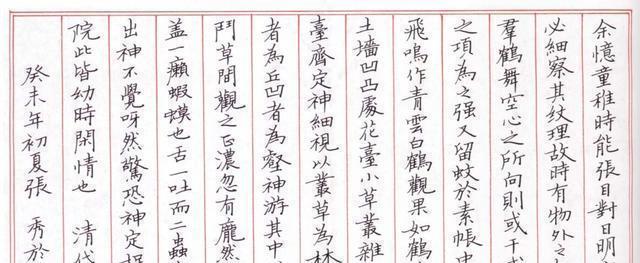 余憶童稚時能張目對日明
必細察其紋理故時有物外之
羣鶴舞空心之所向則或千或
之項為之强又留蚊於素帳中
飛鳴作青雲白鶴觀果如鶴
土墻凹凸處花臺小草叢雜
臺齊定神細視以叢草為林
者為丘凹者為壑神游其中
鬥草間觀之正濃忽有龐然
蓋一癩蝦蟆也舌一吐而二蟲
出神不覺呀然驚恐神定捉
院此皆幼時閑情也 清代
癸未年初夏張 秀於